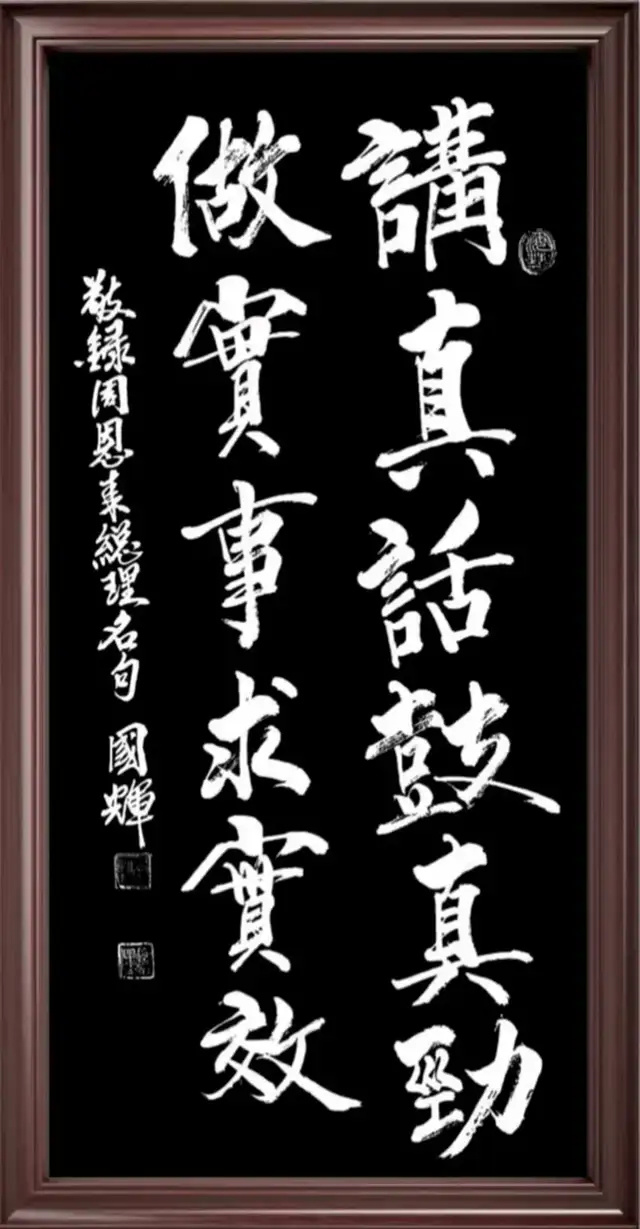 講真話鼓真勁
做實事求實效
敬録周恩来總理名句 國輝